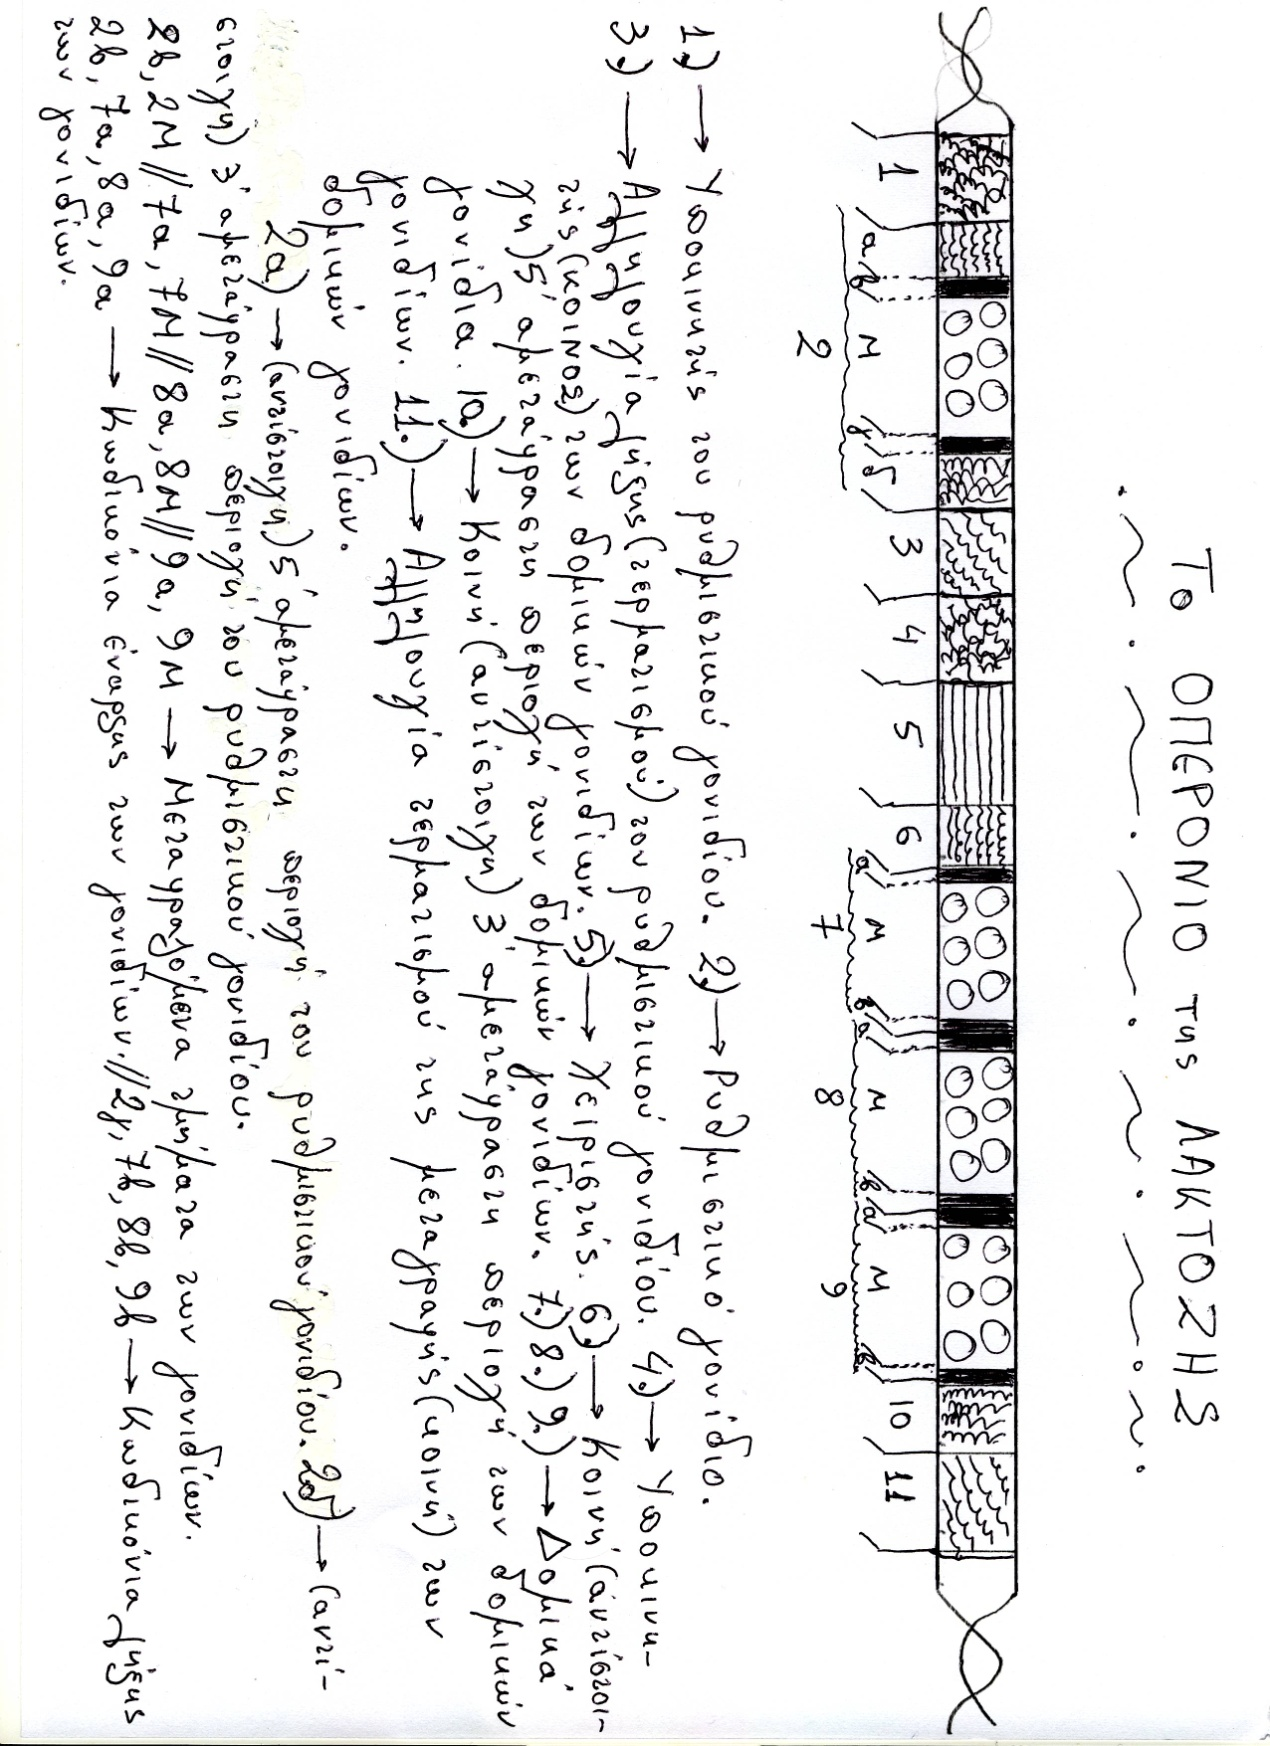 Το ΟΠΕΡΟΝΙΟ της ΛΑΚΤΟΖΗΣ
1 α β Μ γ δ 3 4 5 6 α Μ β α Μ β α Μ β 10 11
2 7 8 9
1.) → Υποκινητής του ρυθμιστικού γονιδίου. 2.) → Ρυθμιστικό γονίδιο.
3.) → Αλληλουχία λήξης (τερματισμού) του ρυθμιστικού γονιδίου. 4.) → Υποκινη-
τής (κοινος) των δομικών γονιδίων. 5.) → Χειριστής. 6.) → Κοινή (αντίστοι-
χη) 5' αμετάφραστη περιοχή των δομικών γονιδίων. 7.) 8.) 9.) → Δομικά
γονίδια. 10.) → Κοινή (αντίστοιχη) 3' αμετάφραστη περιοχή των δομικών
γονιδίων. 11.) → Αλληλουχία τερματισμού της μεταγραφής (κοινή) των
δομικών γονιδίων.
2α) → (αντίστοιχη) 5' αμετάφραστη περιοχή του ρυθμιστικού γονιδίου. 2δ) → (αντί-
στοιχη) 3' αμετάφραστη περιοχή του ρυθμιστικού γονιδίου.
2β, 2Μ // 7α, 7Μ // 8α, 8Μ // 9α, 9Μ → Μεταγραφόμενα τμήματα των γονιδίων.
2β, 7α, 8α, 9α → Κωδικόνια έναρξης των γονιδίων. // 2γ, 7β, 8β, 9β → Κωδικόνια λήξης
των γονιδίων.